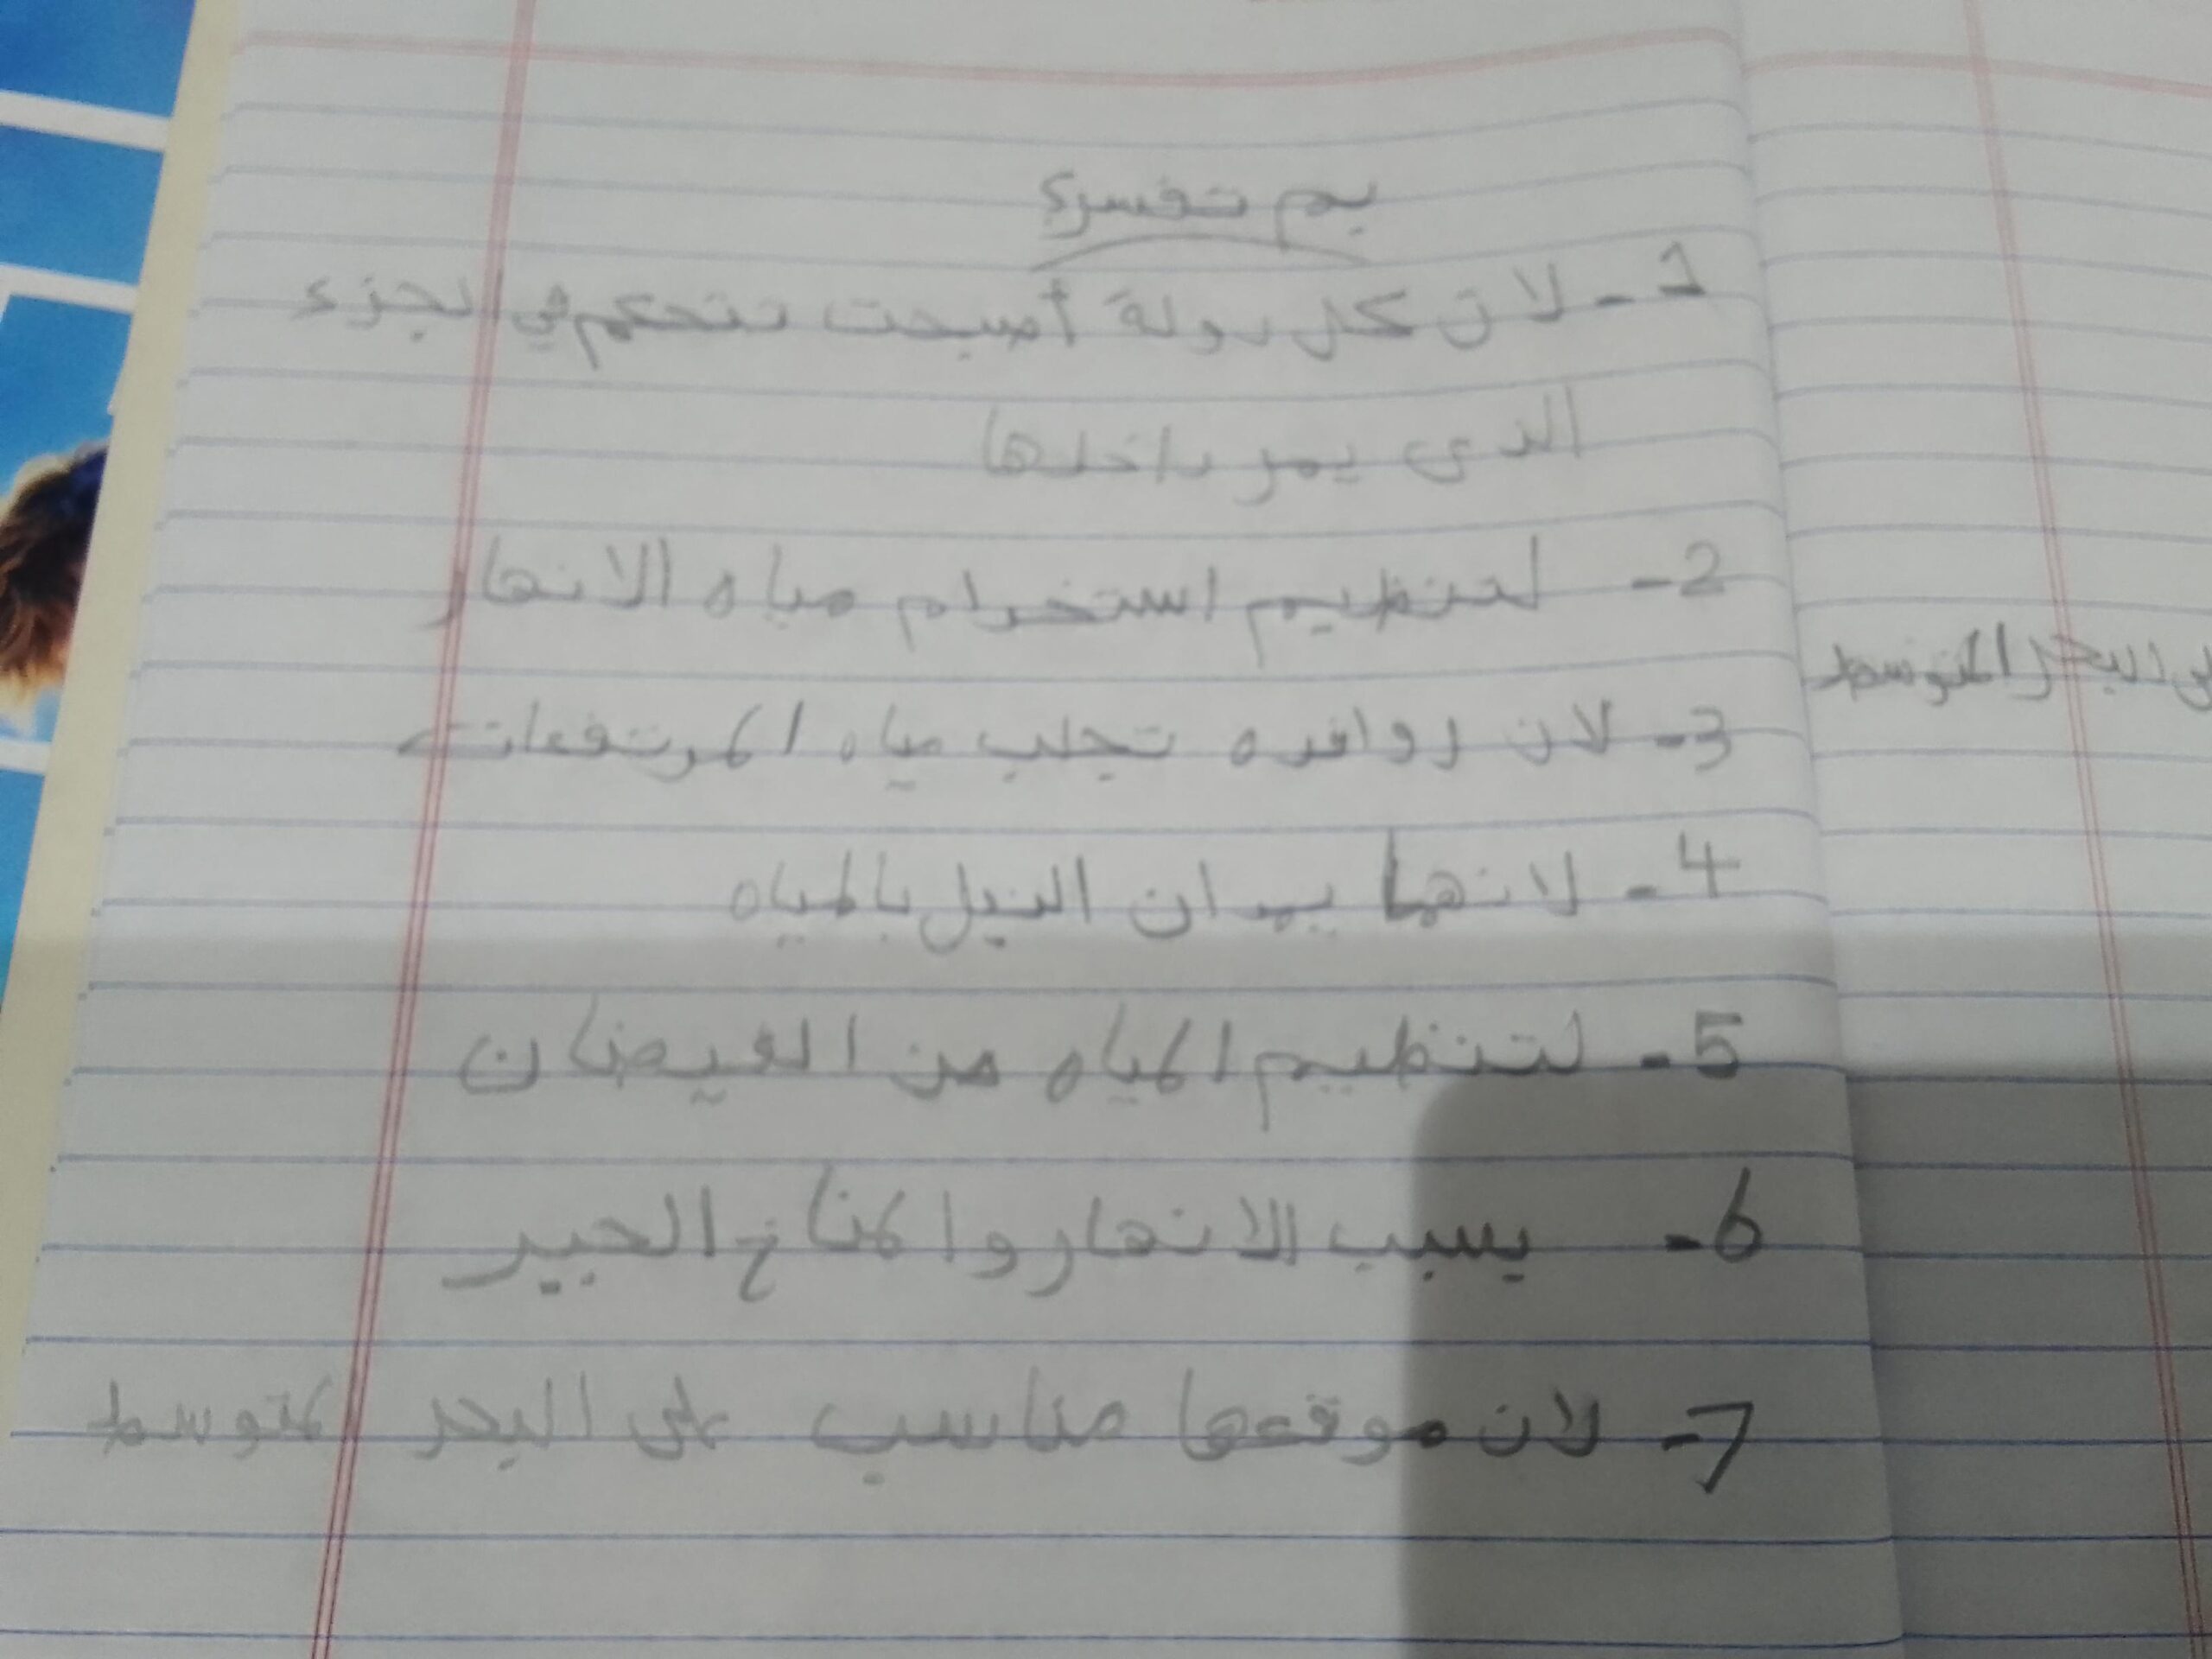 بم تفسر؟
1- لان كل دولة أصبحت تتحكم في الجزء
الذى يمر داخلها
2- لتنظيم استخدام مياه الانهار
3- لان روافده تجلب مياه المرتفعات
4- لانهما يمدان النيل بالمياه
5- لتنظيم المياه من الفيضان
6- بسبب الانهار والمناخ الحبير
7- لان موقعها مناسب على البحر لمتوسط
البحر المتوسط